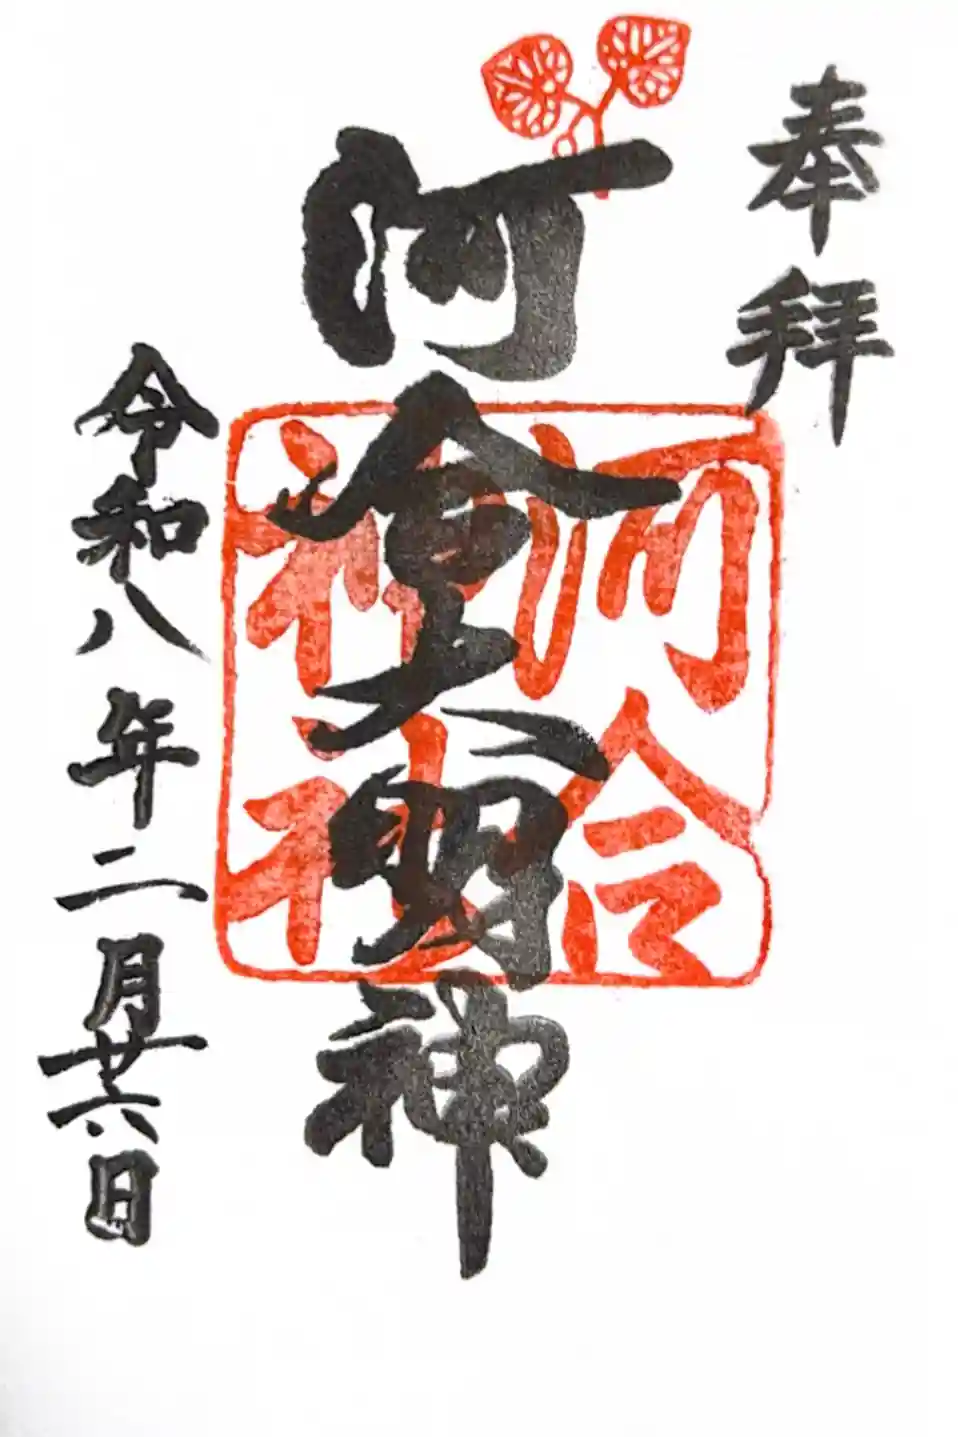 奉拝
河合大明神
河合神社
令和八年二月廿六日